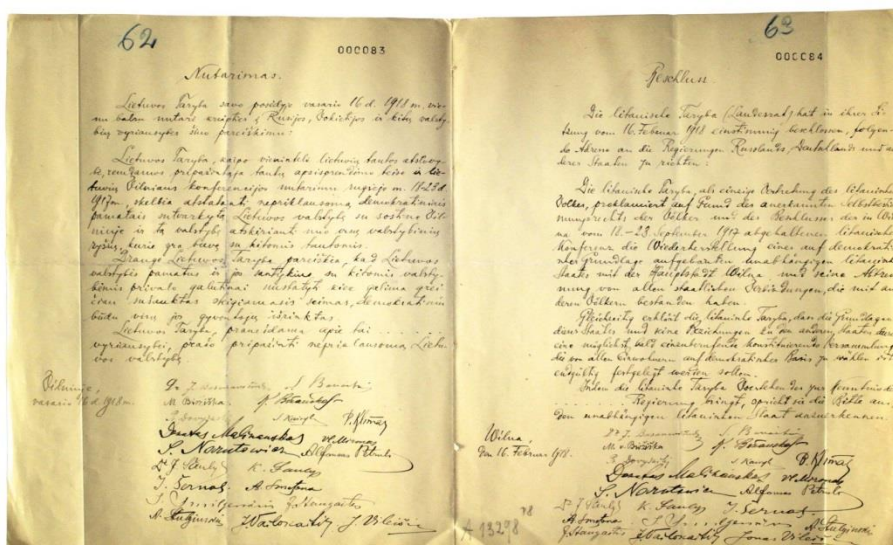 62
000083
Nutarimas.
Lietuvos Taryba savo posėdyje vasario 16 d. 1918 m. vie-
nu balsu nutarė kreiptis į Rusijos, Vokietijos ir kitų valsty-
bių vyriausybes šiuo pareiškimu:
Lietuvos Taryba, kaipo vienintelė lietuvių tautos atstovy-
bė, remdamos pripažintąja tautų apsisprendimo teise ir lie-
tuvių Vilniaus konferencijos nutarimu rugsėjo m. 18-23 d.
1917 m., skelbia atstatanti nepriklausomą demokratiniais
pamatais sutvarkytą Lietuvos valstybę su sostine Vil-
niuje ir tą valstybę atskirianti nuo visų valstybinių
ryšių, kurie yra buvę su kitomis tautomis.
Drauge Lietuvos Taryba pareiškia, kad Lietuvos
valstybės pamatus ir jos santykius su kitomis valsty-
bėmis privalo galutinai nustatyti kiek galima grei-
čiau sušauktas steigiamasis seimas, demokratiniu
būdu visų jos gyventojų išrinktas.
Lietuvos Taryba, pranešdama apie tai ........
vyriausybei, prašo pripažinti nepriklausomą Lietu-
vos valstybę.
Vilniuje,
vasario 16 d. 1918 m.
Dr. J. Basanavičius S. Banaitis
M. Biržiška K. Bizauskas
P. Dovydaitis S. Kairys P. Klimas
Donatas Malinauskas Vl. Mironas
S. Narutowicz Alfonsas Petrulis
Dr. J. Šaulys K. Šaulys
J. Šernas A. Smetona
J. Smilgevičius J. Staugaitis
A. Stulginski J. Vailokaitis J. Vileišis
63
000084
Beschluss.
Die litauische Taryba (Landesrat) hat in ihrer Si-
tzung vom 16. Februar 1918 einstimmig beschlossen, folgen-
de Adresse an die Regierungen Russlands, Deutschlands und an-
derer Staaten zu richten:
Die litauische Taryba, als einzige Vertretung des litauischen
Volkes, proklamiert auf Grund des anerkannten Selbstbestim-
mungsrechts der Völker und des Beschlusses der in Wil-
na vom 18.-23. September 1917 abgehaltenen litauischen
Konferenz die Wiederherstellung eines auf demokrati-
scher Grundlage aufgebauten unabhängigen litauischen
Staates mit der Hauptstadt Wilna und seine Abtren-
nung von allen staatlichen Verbindungen, die mit an-
deren Völkern bestanden haben.
Gleichzeitig erklärt die litauische Taryba, dass die Grundlagen
dieses Staates und seine Beziehungen zu den anderen Staaten durch
eine möglichst bald einzuberufende konstituierende Versammlung,
die von allen Einwohnern auf demokratischer Basis zu wählen ist,
endgültig festgelegt werden sollen.
Indem die litauische Taryba Vorstehendes zur Kenntnis der
........ Regierung bringt, spricht sie die Bitte aus,
den unabhängigen litauischen Staat anzuerkennen.
Wilna,
den 16. Februar 1918.
Dr. J. Basanavičius S. Banaitis
M. v. Biržiška K. Bizauskas
P. Dovydaitis S. Kairys P. Klimas
Donatas Malinauskas Vl. Mironas
S. Narutowicz Alfonsas Petrulis
Dr. J. Šaulys K. Šaulys J. Šernas
A. Smetona J. Smilgevičius A. Stulginski
J. Staugaitis J. Vailokaitis Jonas Vileišis
A 13298